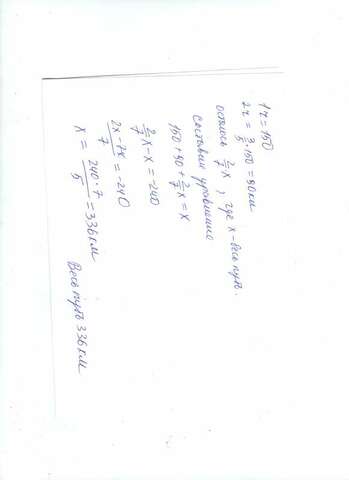 1 ч = 150
2 ч = 3/5 · 150 = 90 км
осталось 2/7 x, где x - весь путь.
составим уравнение
150 + 90 + 2/7 x = x
2/7 x - x = -240
2x - 7x / 7 = -240
x = 240 · 7 / 5 = 336 км
Весь путь 336 км